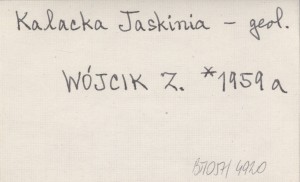 Kalacka Jaskinia – geol.
WÓJCIK Z. *1959a
4920